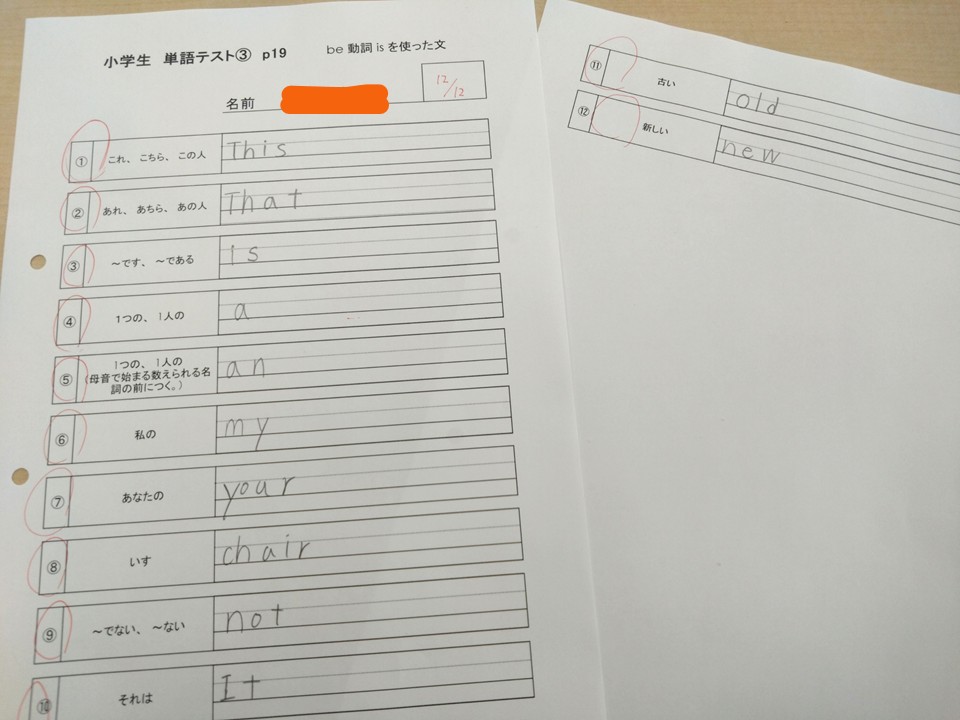 小学生 単語テスト③ p19 be 動詞 is を使った文
名前
12/12
① これ、こちら、この人 This
② あれ、あちら、あの人 That
③ ～です、～である is
④ 1つの、1人の a
⑤ 1つの、1人の
(母音で始まる数えられる名
詞の前につく。) an
⑥ 私の my
⑦ あなたの your
⑧ いす chair
⑨ ～でない、～ない not
⑩ それは It
⑪ 古い old
⑫ 新しい new